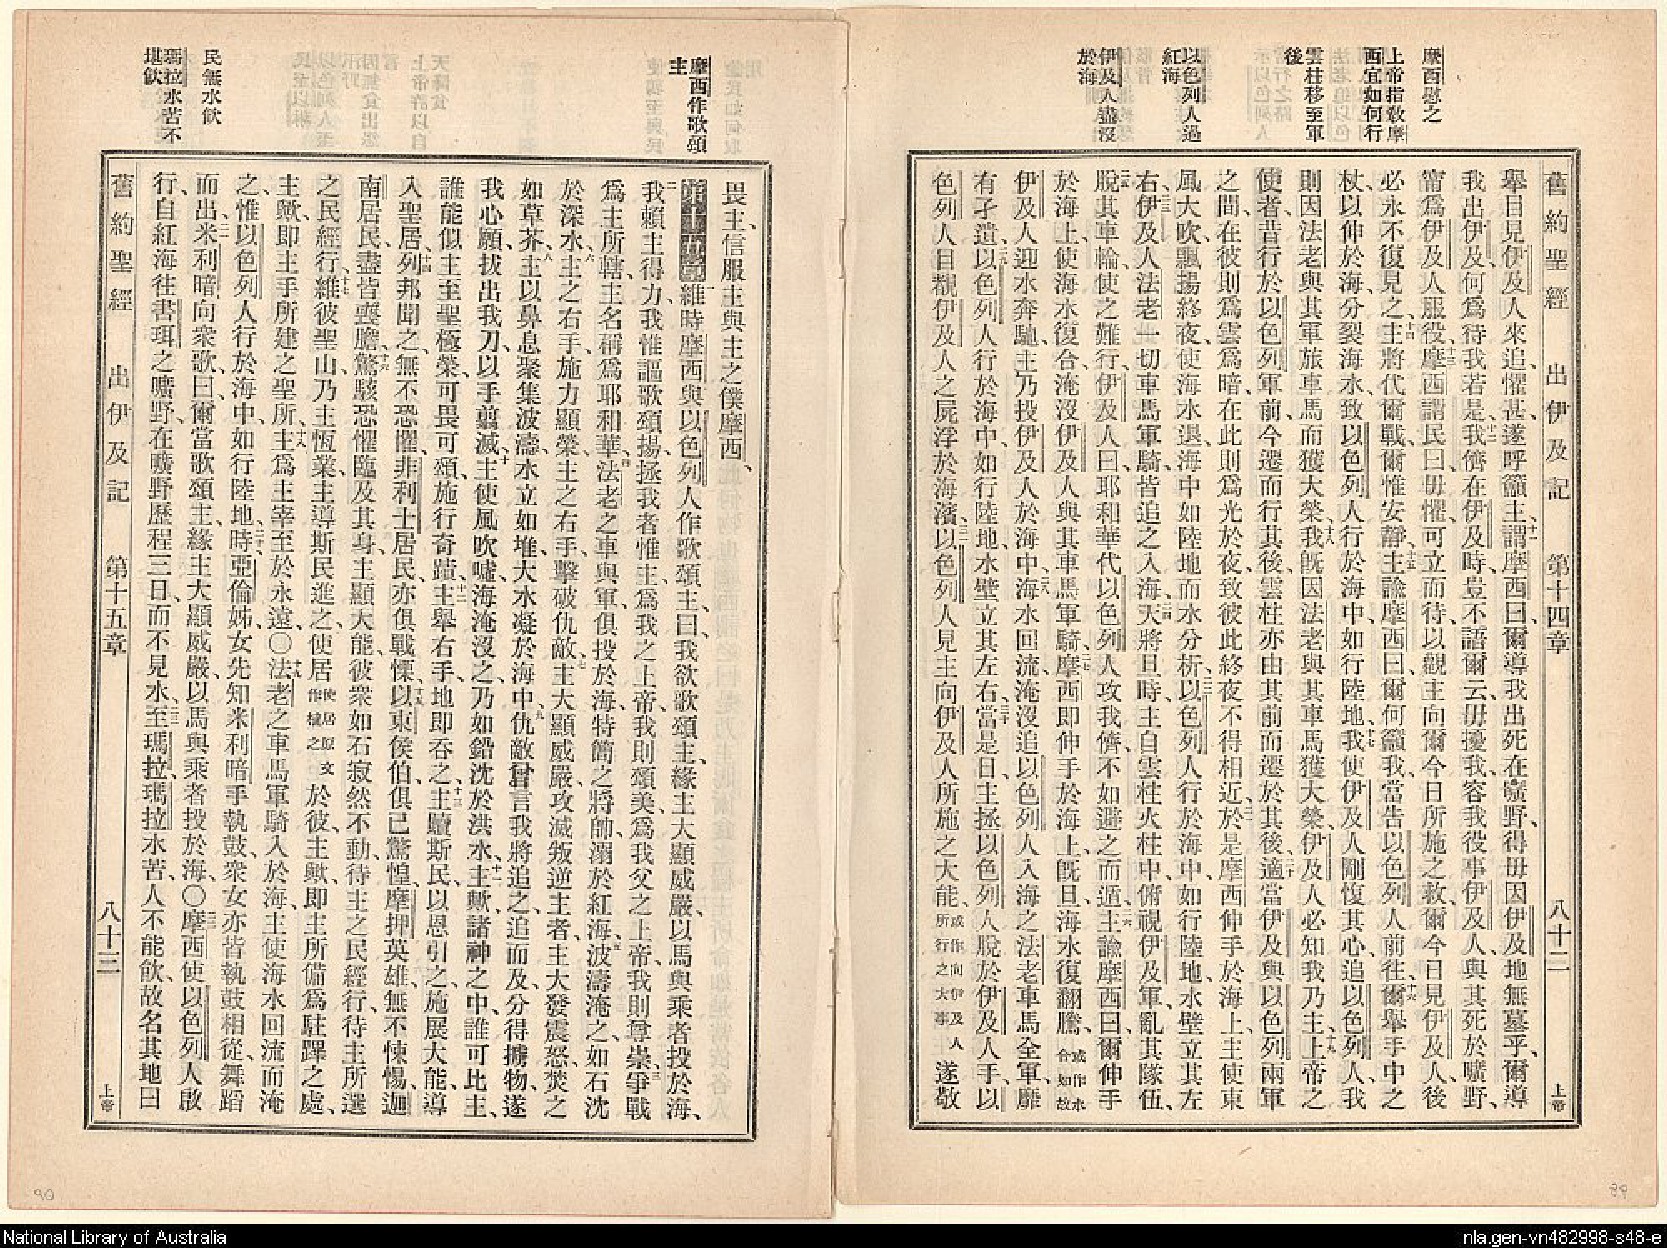 摩西慰之
上帝指敎摩
西宜如何行
雲柱移至軍
後
以色列人過
紅海
伊及人盡沒
於海
舊約聖經 出伊及記 第十四章 八十二 上帝
舉目見伊及人來追、懼甚、遂呼籲主、十一謂摩西曰、爾導我出死在曠野、得毋因伊及地無墓乎、爾導
我出伊及何爲待我若是、十二我儕在伊及時、豈不語爾云、毋擾我、容我役事伊及人、與其死於曠野、
甯爲伊及人服役、十三摩西謂民曰、毋懼、可立而待、以觀主向爾今日所施之救、爾今日見伊及人、後
必永不復見之、十四主將代爾戰、爾惟安靜、十五主諭摩西曰、爾何籲我、當吿以色列人前往、十六爾舉手中之
杖、以伸於海、分裂海水、致以色列人行於海中、如行陸地、十七我使伊及人剛愎其心、追以色列人、我
則因法老與其軍旅車馬而獲大榮、十八我旣因法老與其車馬獲大榮、伊及人必知我乃主、十九上帝之
使者、昔行於以色列軍前、今遷而行其後、雲柱亦由其前而遷於其後、二十適當伊及與以色列兩軍
之間、在彼則爲雲爲暗、在此則爲光於夜、致彼此終夜不得相近、二一於是摩西伸手於海上、主使東
風大吹、飄揚終夜、使海水退、海中如陸地、而水分析、二二以色列人行於海中、如行陸地、水壁立其左
右、二三伊及人法老一切車馬軍騎、皆追之入海、二四天將旦時、主自雲柱火柱中俯視伊及軍、亂其隊伍、
二五脫其車輪、使之難行、伊及人曰、耶和華代以色列人攻我儕、不如避之而遁、二六主諭摩西曰、爾伸手
於海上、使海水復合、淹沒伊及人與其車馬軍騎、二七摩西卽伸手於海上、旣旦、海水復翻騰、或作水合如故
伊及人迎水奔馳、主乃投伊及人於海中、二八海水回流、淹沒追以色列人入海之法老車馬全軍、靡
有孑遺、二九以色列人行於海中、如行陸地、水壁立其左右、三十當是日、主拯以色列人脫於伊及人手、以
色列人目覩伊及人之屍浮於海濱、三一以色列人見主向伊及人所施之大能、或作向伊及人所行之大事遂敬
摩西作歌頌
主
民無水飮
瑪拉水苦不
堪飮
畏主、信服主與主之僕摩西、
第十五章 一維時摩西與以色列人作歌頌主曰、我欲歌頌主、緣主大顯威嚴、以馬與乘者投於海、
二我賴主得力、我惟謳歌頌揚、拯我者惟主、爲我之上帝、我則頌美、爲我父之上帝、我則尊崇、三爭戰
爲主所轄、主名稱爲耶和華、四法老之車與軍、俱投於海、特簡之將帥、溺於紅海、五波濤淹之、如石沈
於深水、六主之右手施力顯榮、主之右手擊破仇敵、七主大顯威嚴、攻滅叛逆主者、主大發震怒、焚之
如草芥、八主以鼻息聚集波濤、水立如堆、大水凝於海中、九仇敵嘗言、我將追之、追而及、分得擄物、遂
我心願、拔出我刀、以手翦滅、十主使風吹噓、海淹沒之、乃如鉛沈於洪水、十一主歟、諸神之中、誰可比主、
誰能似主、至聖極榮、可畏可頌、施行奇蹟、十二主舉右手、地卽吞之、十三主贖斯民、以恩引之、施展大能、導
入聖居、十四列邦聞之、無不恐懼、非利士居民、亦俱戰慄、十五以東侯伯俱已驚惶、摩押英雄無不悚惕、迦
南居民盡皆喪膽、十六驚駭恐懼、臨及其身、主顯大能、彼衆如石、寂然不動、待主之民經行、待主所選
之民經行、十七維彼聖山、乃主恆業、主導斯民、進之使居使居原文作植之於彼、主歟、卽主所備爲駐蹕之處、
主歟、卽主手所建之聖所、十八主爲主宰、至於永遠、○十九法老之車馬軍騎入於海、主使海水回流而淹
之、惟以色列人行於海中、如行陸地、二十時亞倫姊女先知米利暗手執鼓、衆女亦皆執鼓相從、舞蹈
而出、二一米利暗向衆歌曰、爾當歌頌主、緣主大顯威嚴、以馬與乘者投於海、○二二摩西使以色列人啟
行、自紅海往書珥之曠野、在曠野歷程三日、而不見水、二三至瑪拉、瑪拉水苦、人不能飮、故名其地曰
舊約聖經 出伊及記 第十五章 八十三 上帝
90
89
National Library of Australia
nla.gen-vn482998-s48-e